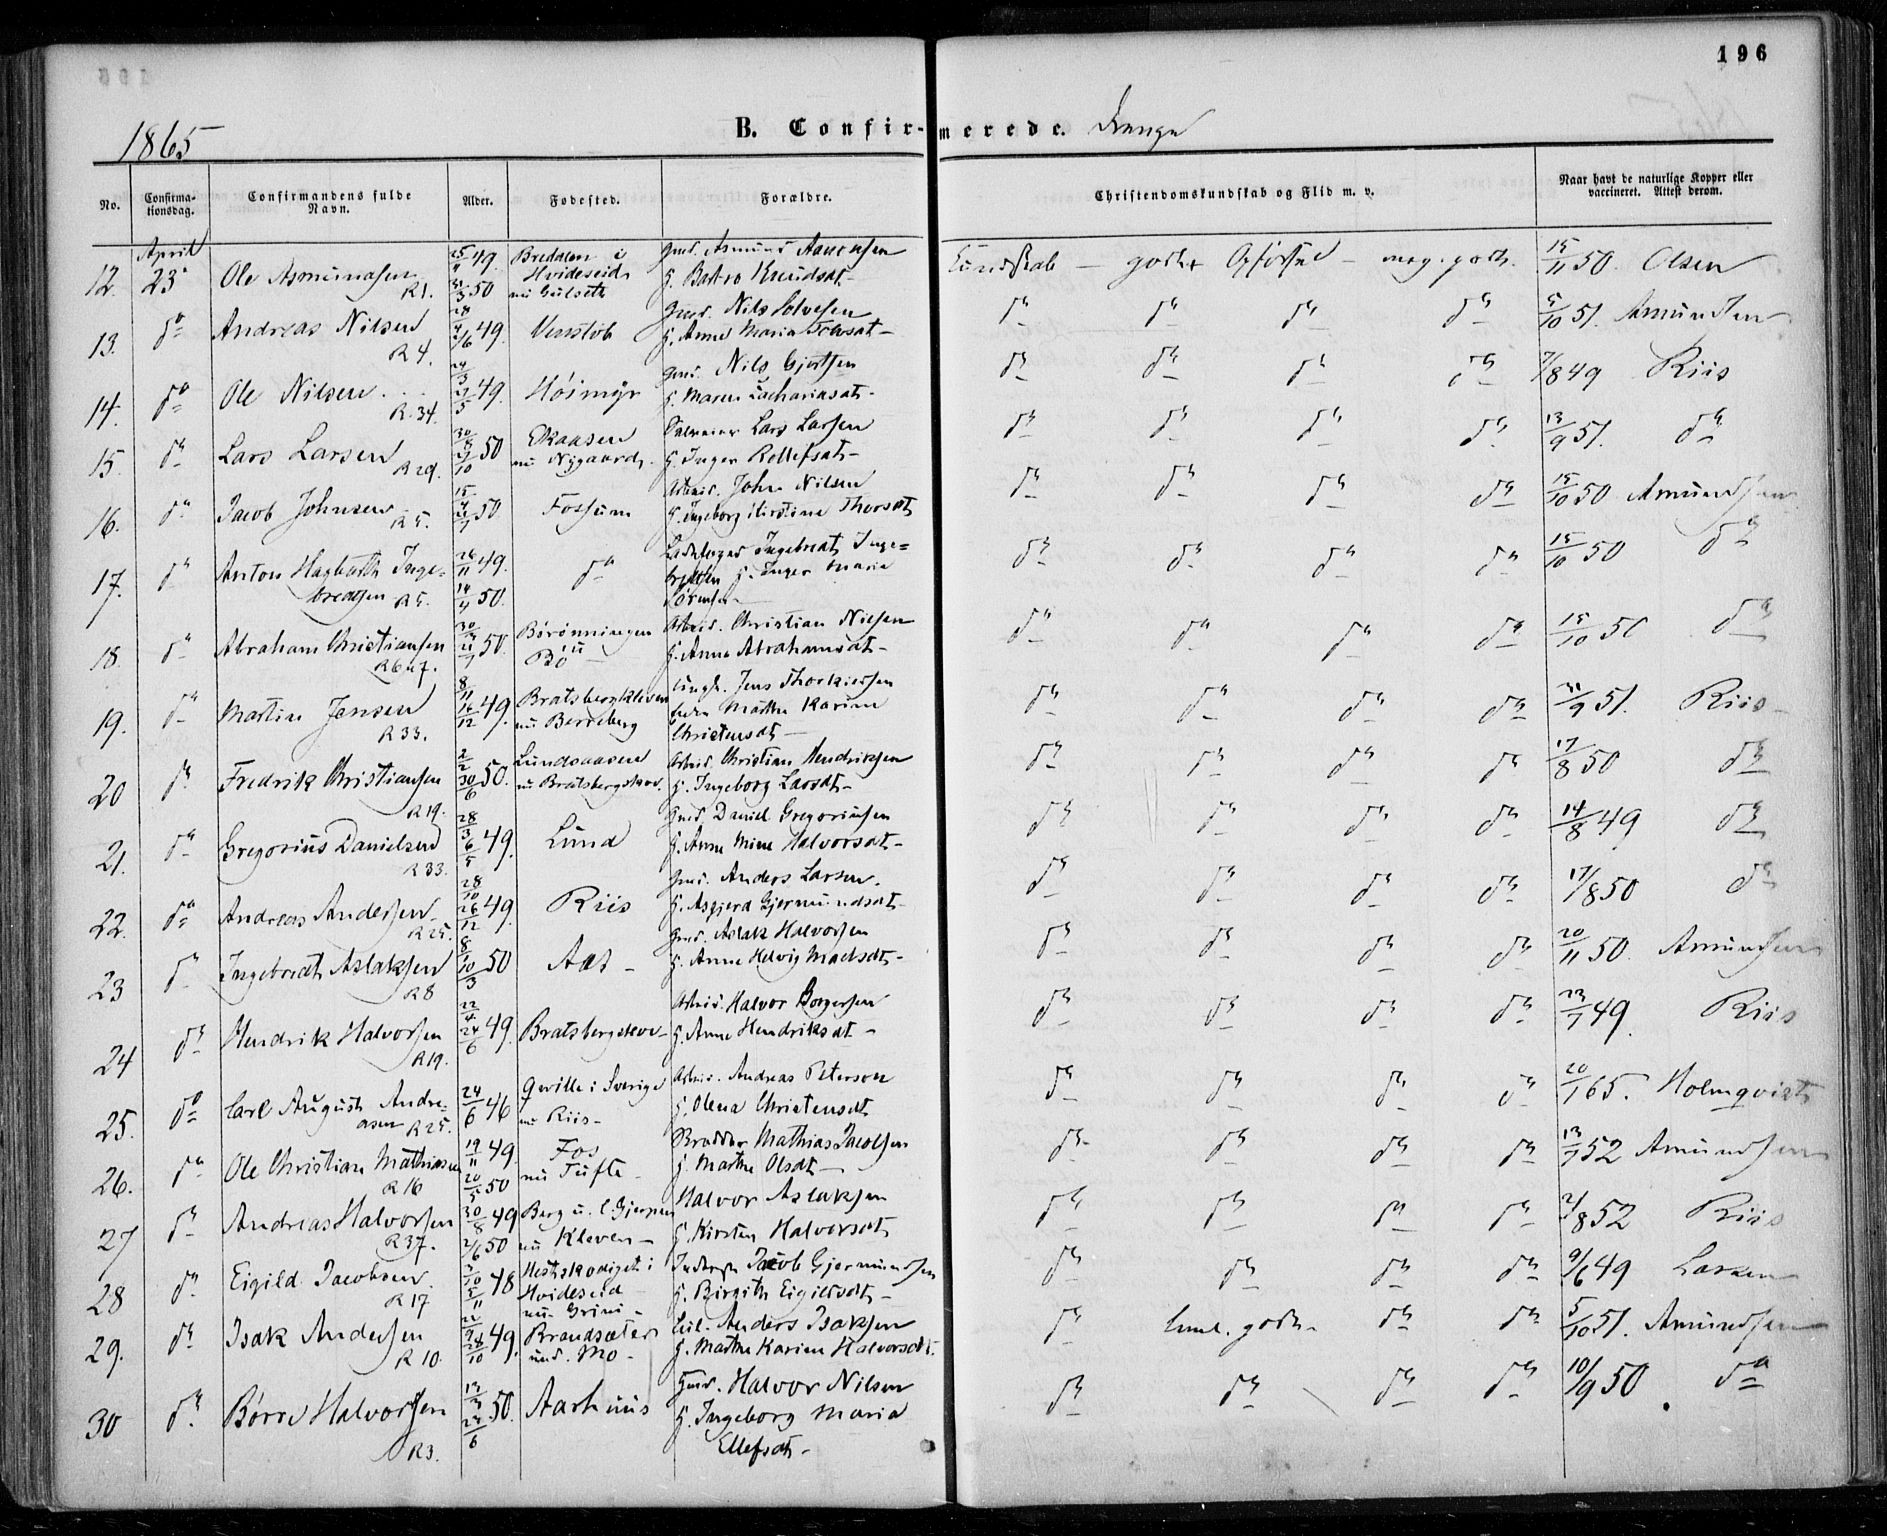 196
1865
B. Confirmerede. Drenge
No.
Confirmationsdag.
Confirmandens fulde Navn.
Alder.
Fødested.
Forældre.
Christendomskundskab og Flid m. v.
Naar havt de naturlige Kopper eller vaccineret. Attest derom.
April
12. 23 Ole Asmundsen R1. 49. 50 Hvideseid nu Gulseth Gmd. Asmund H. Knudsdt- Kundskab - godt Opførsel - meg. godt. 15/11 50. Olsen
13. do Andreas Nilsen R4. 49. Venstøb Gmd. Nils Solvesen H. Anne Maria Tovsdt- do do do do 5/10 51. Amundsen
14. do Ole Nilsen R.34. 49. Høimyr Gmd. Nils Gjertsen H. Maren Zachariasdt- do do do do 7/8 49 Riis
15. do Lars Larsen R29. 50 Ekaasen nu Nygaard. Lars Larsen H. Inger Rollefsdt- do do do do 13/9 51. do
16. do Jacob Johnsen R5. 50. Fossum Arbeid. John Nilsen H. Ingeborg Kirstine Thorsdt do do do do 15/10 50 Amundsen
17. do Anton Hagbarth Ingebretsen R5. 26/11 49. 14/4 50. do Ingebreth Ingebretsen H. Inger Maria Sørensen do do do do 15/10 50 do
18 do Abraham Christiansen R6 50. Børønningen Bö Arbeid. Christian Nielsen H. Anne Abrahamsdt- do do do do 15/10 50 do
19. do Martin Jensen R33. 8/11 16/12 49. Bratsbergkleven nu Berreberg Ungk. Jens Thorkildsen Marthe Karine Christensdt- do do do do 51. Riis-
20 do Fredrik Christiansen R19. 2/2 30/6 50. Lundsaasen nu Bratsbergskov. Arbeid. Christian Hendriksen H. Ingeborg Larsdt- do do do do 17/8 50 do
21. do Gregorius Danielsen R33. 28/3 6/5 49. Lund Gmd. Daniel Gregoriusen H. Anne Mine Halvorsdt- do do do do 14/8 49 do
22. do Andreas Andersen R25. 28/10 26/12 49. Riis Gmd. Anders Larsen. H. Asgjerd Gjermundsdt- do do do do 17/8 50 do
23 do Ingebreth Aslaksen R8 8/1 10/3 50 Aas - Gmd. Aslak Halvorsen H. Anne Helvig Madsdt- do do do do 20/11 50. Amundsen
24 do Hendrik Halvorsen R19. 22/4 24/6 49. Bratsbergskov- Arbeid. Halvor Borgersen H. Anne Hendriksdt- do do do do 23/7 49. Riis
25. do Carl August Andreasen R25. 24/6 46 Qville i Sverige nu Riis- Arbeid. Andreas Peterson H. Olena Christensdt do do do do 20/1 65. Holmqvist
26. do Ole Christian Mathiasen R16 19/11 49. 20/5 50 Fos nu Tufte- Mathias Jacobsen H. Marthe Olsdt- do do do do 13/7 52 Amundsen
27 do Andreas Halvorsen R37. 30/8 49 2/6 50 Berg u. Gjerpen nu Kleven- Halvor Aslaksen H. Kirsten Halvorsdt do do do do 2/8 52 Riis
28 do Eigild Jacobsen R17 48 Hvideseid nu Grini- Inderst Jacob Gjermundsen H. Birgith Eigildsdt- do do do do 9/6 49 Larsen
29. do Isak Andersen R10. 49. Brandsæter und. Mo- Anders Isaksen H. Marthe Karine Halvorsdt. do teml. godt- do do 5/10 51. Amundsen
30 do Børre Halvorsen R3. 50. Aarhuus Gmd. Halvor Nilsen H. Ingeborg Maria Ellefsdt- do do do do 10/9 50 do